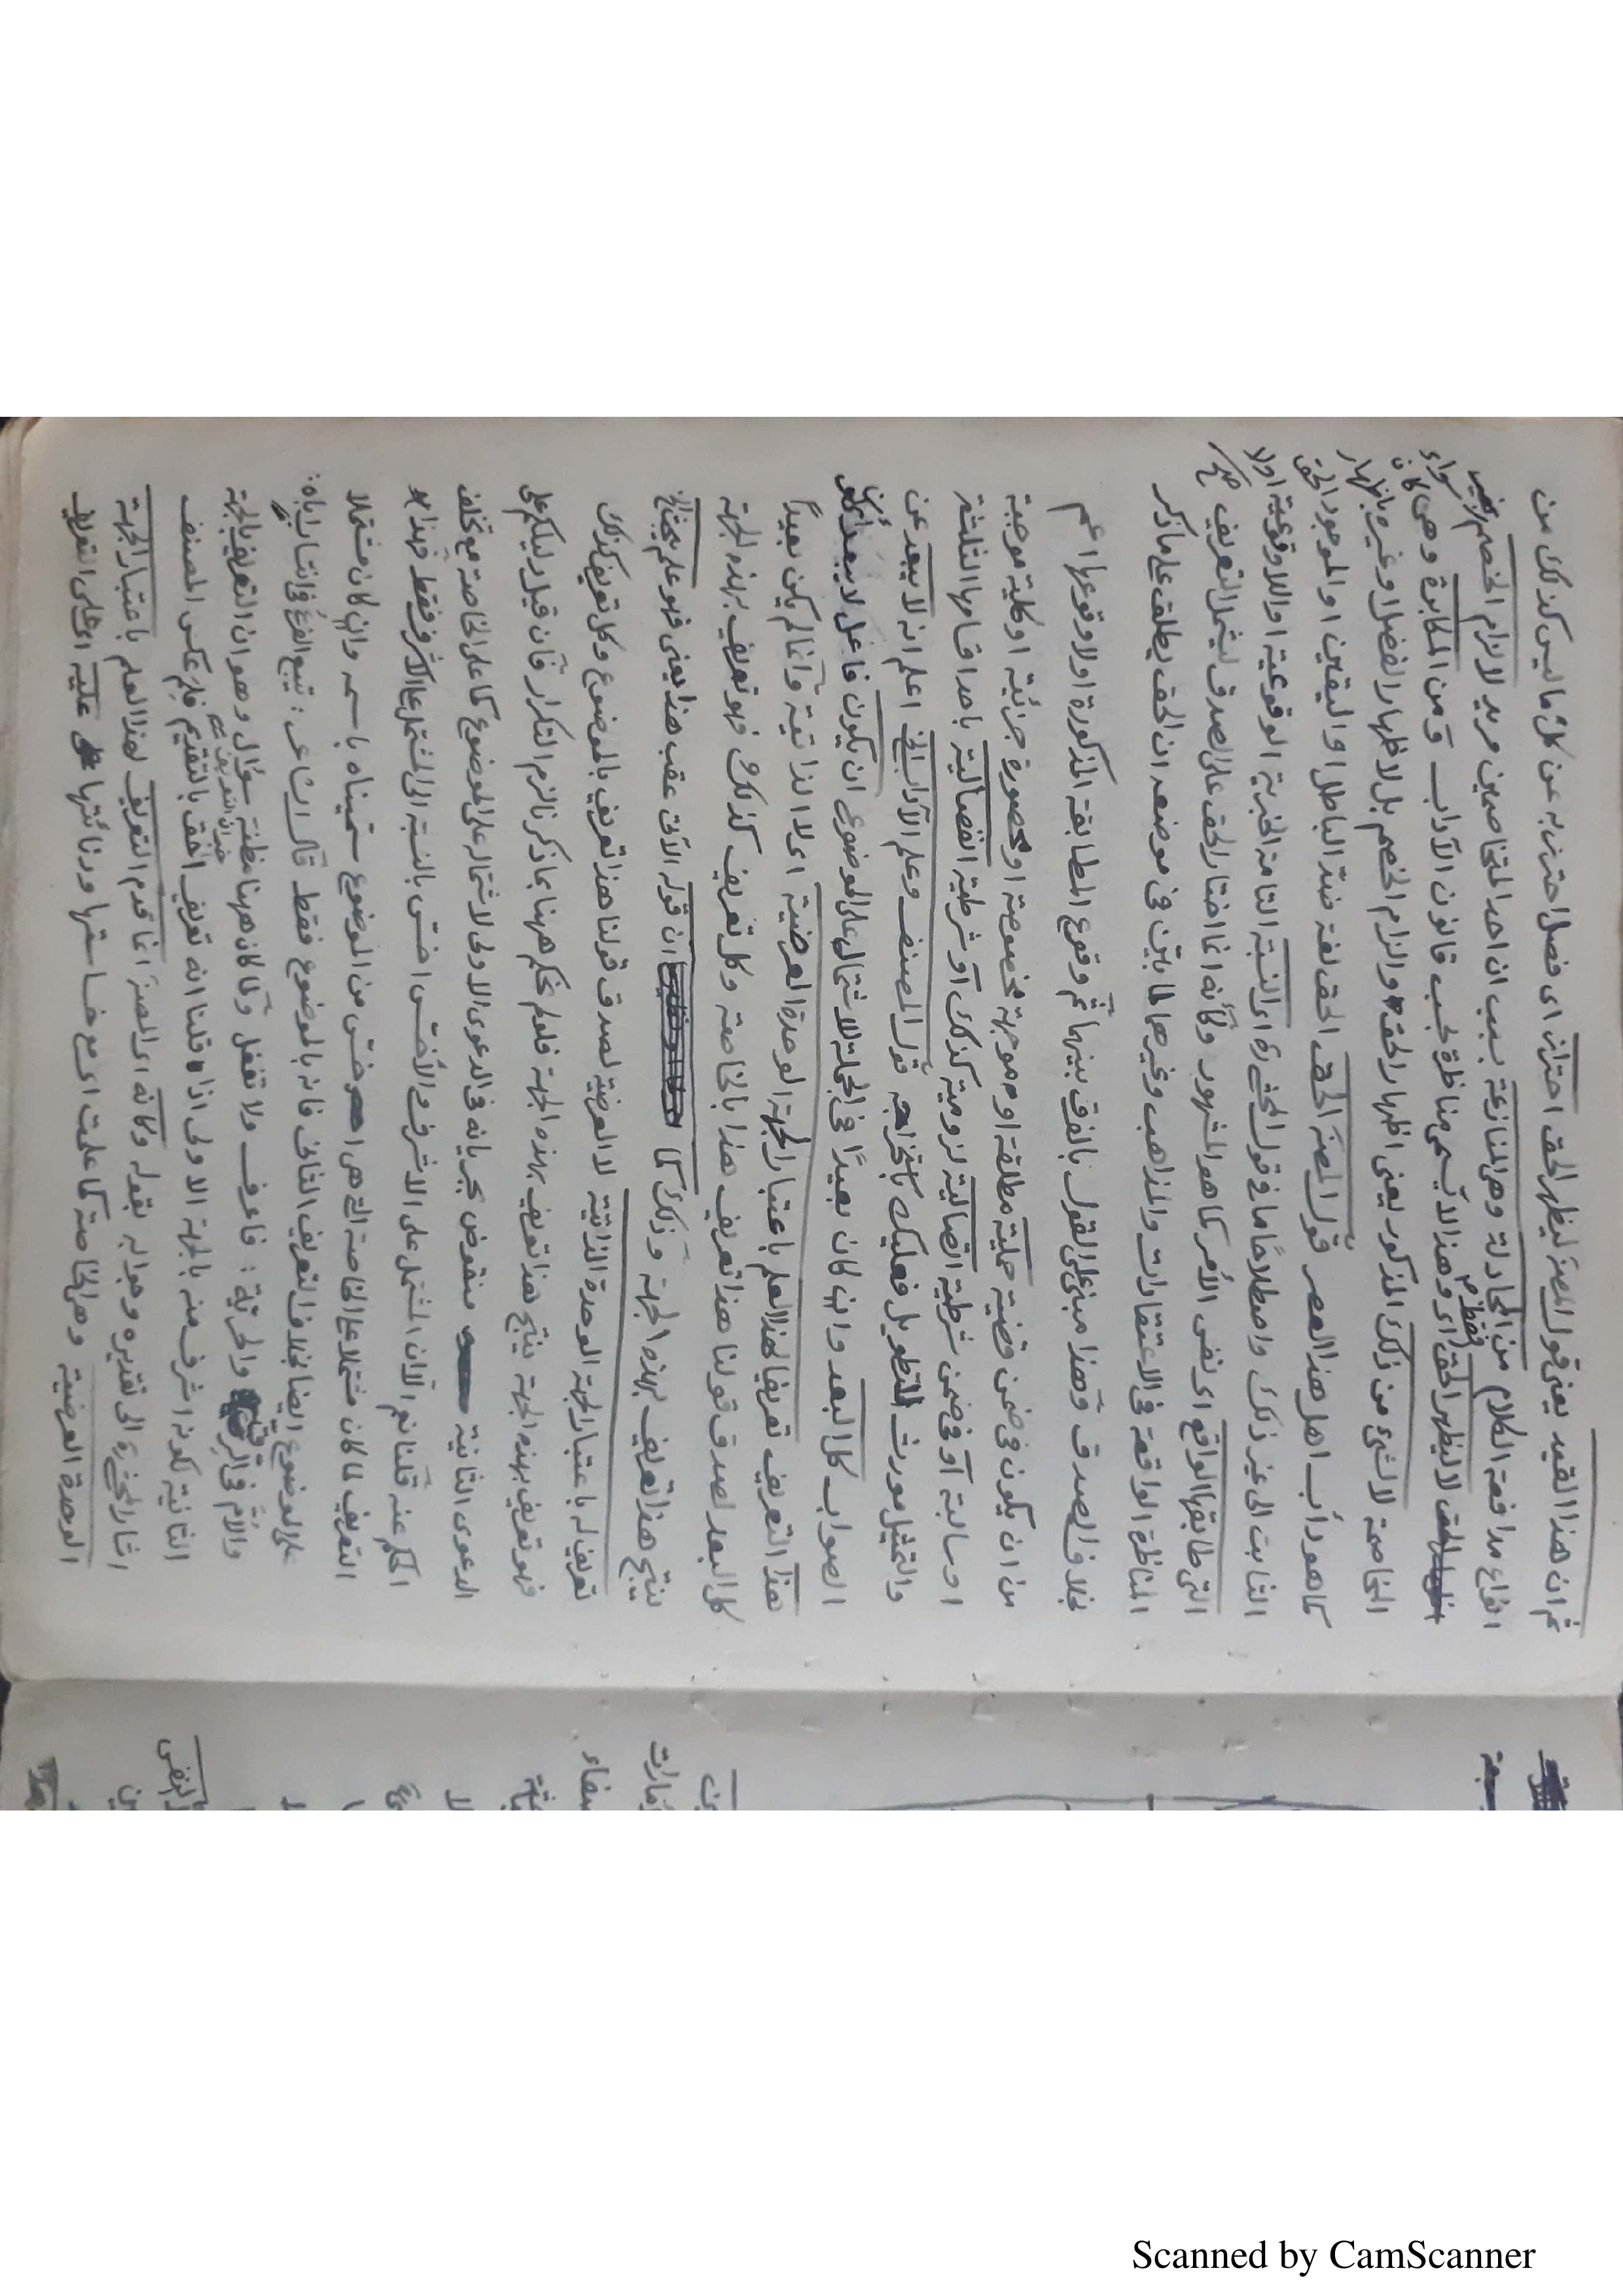 ثم ان هذا القيد يعنى قول المصنف ليظهر الحق احتراز اى فصل احترز به عن كل ما ليس كذلك من
انواع مدافعة الكلام من المجادلة وهى المنازعة بسبب ان احد المتخاصمين مريد لالزام الخصم
ليظهر الحق وهذا لا يسمى مناظرة بحسب قانون الآداب ومن المكابرة وهى سواء كان
المخاصمة لا لشئ من ذلك المذكور يعنى اظهار الحق والزام الخصم بل لاظهار الفضل وغيره
كما هو دأب اهل هذا العصر قول المصنف الحق الحق لغة ضد الباطل او اليقين او الموجود
الثابت الى غير ذلك واصطلاحا ما فى قول المحشى اى النسبة التامة الخبرية الوقوعية او اللاوقوعية
التى طابقها الواقع اى نفس الأمر كما هو المشهور وكأنه انما اختار الحق على الصدق ليشمل التعريف
المناظرة الواقعة فى الاعتقادات والمذاهب وغيرهما لما بين فى موضعه ان الحق يطلق على ما ذكر
بخلاف الصدق وهذا مبنى على القول بالفرق بينهما ثم وقوع المطابقة المذكورة اولا وقوعها اعم
من ان يكون فى ضمن قضية حملية مطلقة او موجهة مخصوصة او محصورة جزئية او كلية موجبة
او سالبة او فى ضمن شرطية اتصالية لزومية كذلك او شرطية انفصالية باحد اقسامها الثلثة
والتمثيل مورث للتطويل فعليك باستخراجه قول المصنف وعلم الآداب الخ اعلم انه لا يبعد عن
الصواب كل البعد وان كان بعيدا فى الجملة لاشتمال على الموضوع ان يكون فاعل لا يبعد
هذا التعريف تعريفا لهذا العلم باعتبار الجهة الوحدة العرضية اى لا الذاتية وانما لم يكن بعيدا
كل البعد لصدق قولنا هذا تعريف هذا بالخاصة وكل تعريف كذلك فهو تعريف بهذه الجهة
ينتج هذا تعريف بهذه الجهة وذلك كما ان قوله الآتى عقب هذا يعنى فهو علم
تعريف له باعتبار الجهة الوحدة الذاتية لا العرضية لصدق قولنا هذا تعريف بالموضوع وكل تعريف كذلك
فهو تعريف بهذه الجهة ينتج هذا تعريف بهذه الجهة فلم نحكم ههنا بما ذكر لالزم التكرار فان قيل دليلكم على
الدعوى الثانية منقوض بجريانه فى الدعوى الاولى لاشتماله على الموضوع كما على الخاصة مع تخلف
الحكم عنه قلنا نعم الا ان المشتمل على الاشرف والأخس اخس بالنسبة الى المشتمل على الاشرف فقط فهذا
التعريف لما كان مشتملا على الخاصة التى هى اخس من الموضوع سميناه باسمه وان كان مشتملا
على الموضوع ايضا بخلاف التعريف الثانى فانه بالموضوع فقط قال الشاعر: تتبع الفرع فى انتسابه اباه:
والام فى الرقية والحرية: فاعرف ولا تغفل ولما كان ههنا مظنة سؤال وهو ان التعريف بالجهة
الثانية لكونه اشرف منه بالجهة الاولى اذا قلنا انه تعريف احق بالتقديم فلم عكس المصنف
اشار المحشى الى تقديره وجوابه بقوله وكأنه اى المصنف انما قدم التعريف لهذا العلم باعتبار الجهة
الوحدة العرضية وهى الخاصة كما علمت اى مع خساستها ودنائتها عليه اى على التعريف